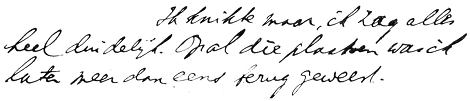 Ik knikte maar, ik zag alles
heel duidelijk. Op al die plaatsen was ik
later meer dan eens terug geweest.